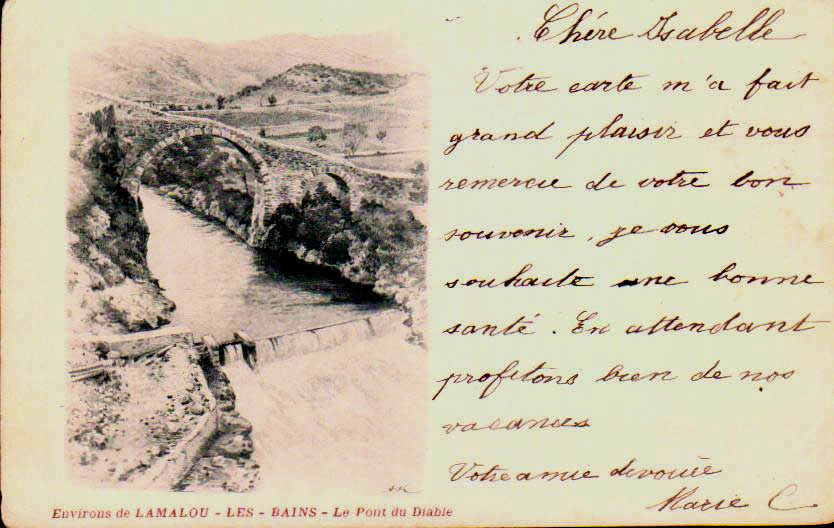 Chére Isabelle
Votre carte m'a fait
grand plaisir et vous
remercie de votre bon
souvenir, je vous
souhaite une bonne
santé. En attendant
profitons bien de nos
vacances
Votre amie dévouée
Marie C
Environs de LAMALOU - LES - BAINS - Le Pont du Diable